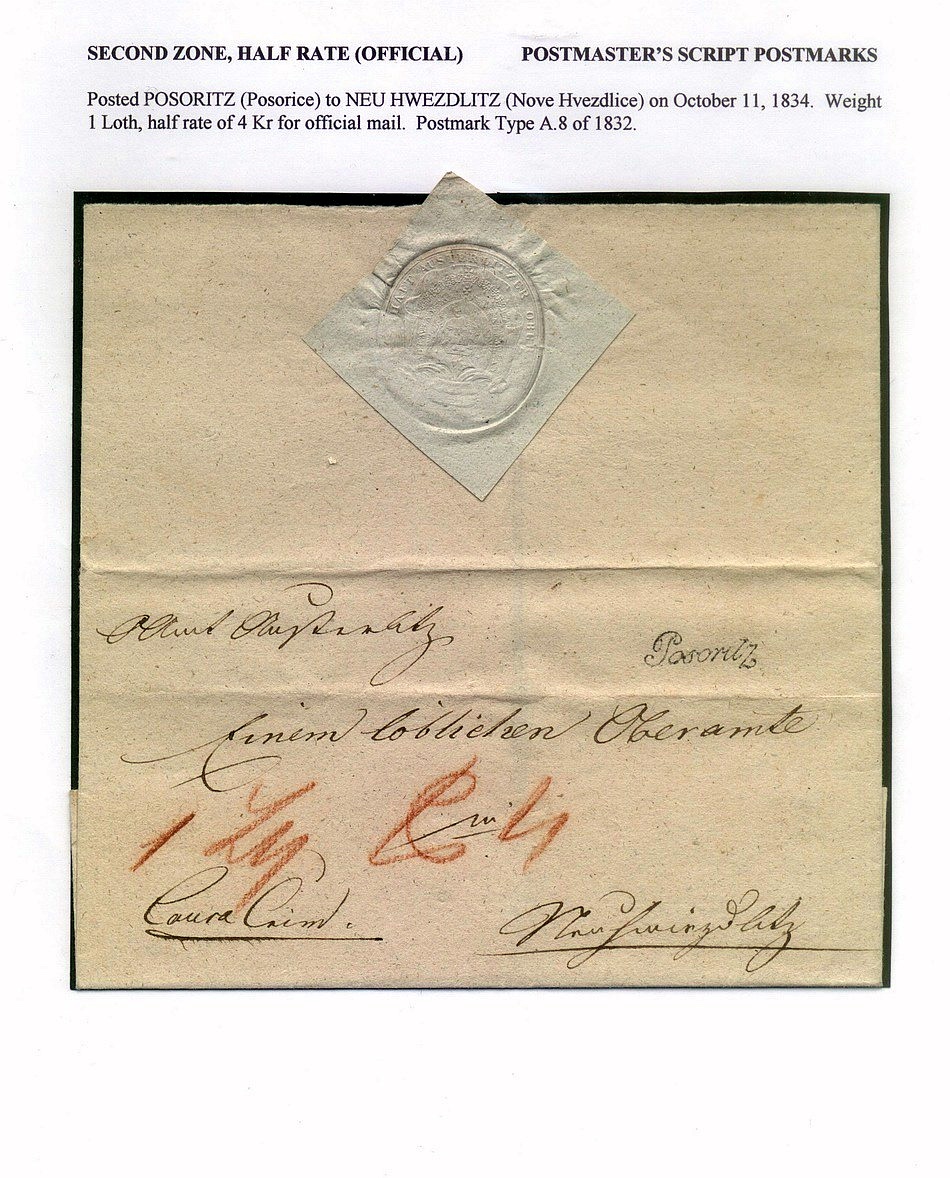 SECOND ZONE, HALF RATE (OFFICIAL) POSTMASTER'S SCRIPT POSTMARKS
Posted POSORITZ (Posorice) to NEU HWEZDLITZ (Nove Hvezdlice) on October 11, 1834. Weight
1 Loth, half rate of 4 Kr for official mail. Postmark Type A.8 of 1832.
AUSTERLITZER OBER
Amt Austerlitz
Posoritz
Einem löblichen Oberamte
1
in
Neuhwiezdlitz